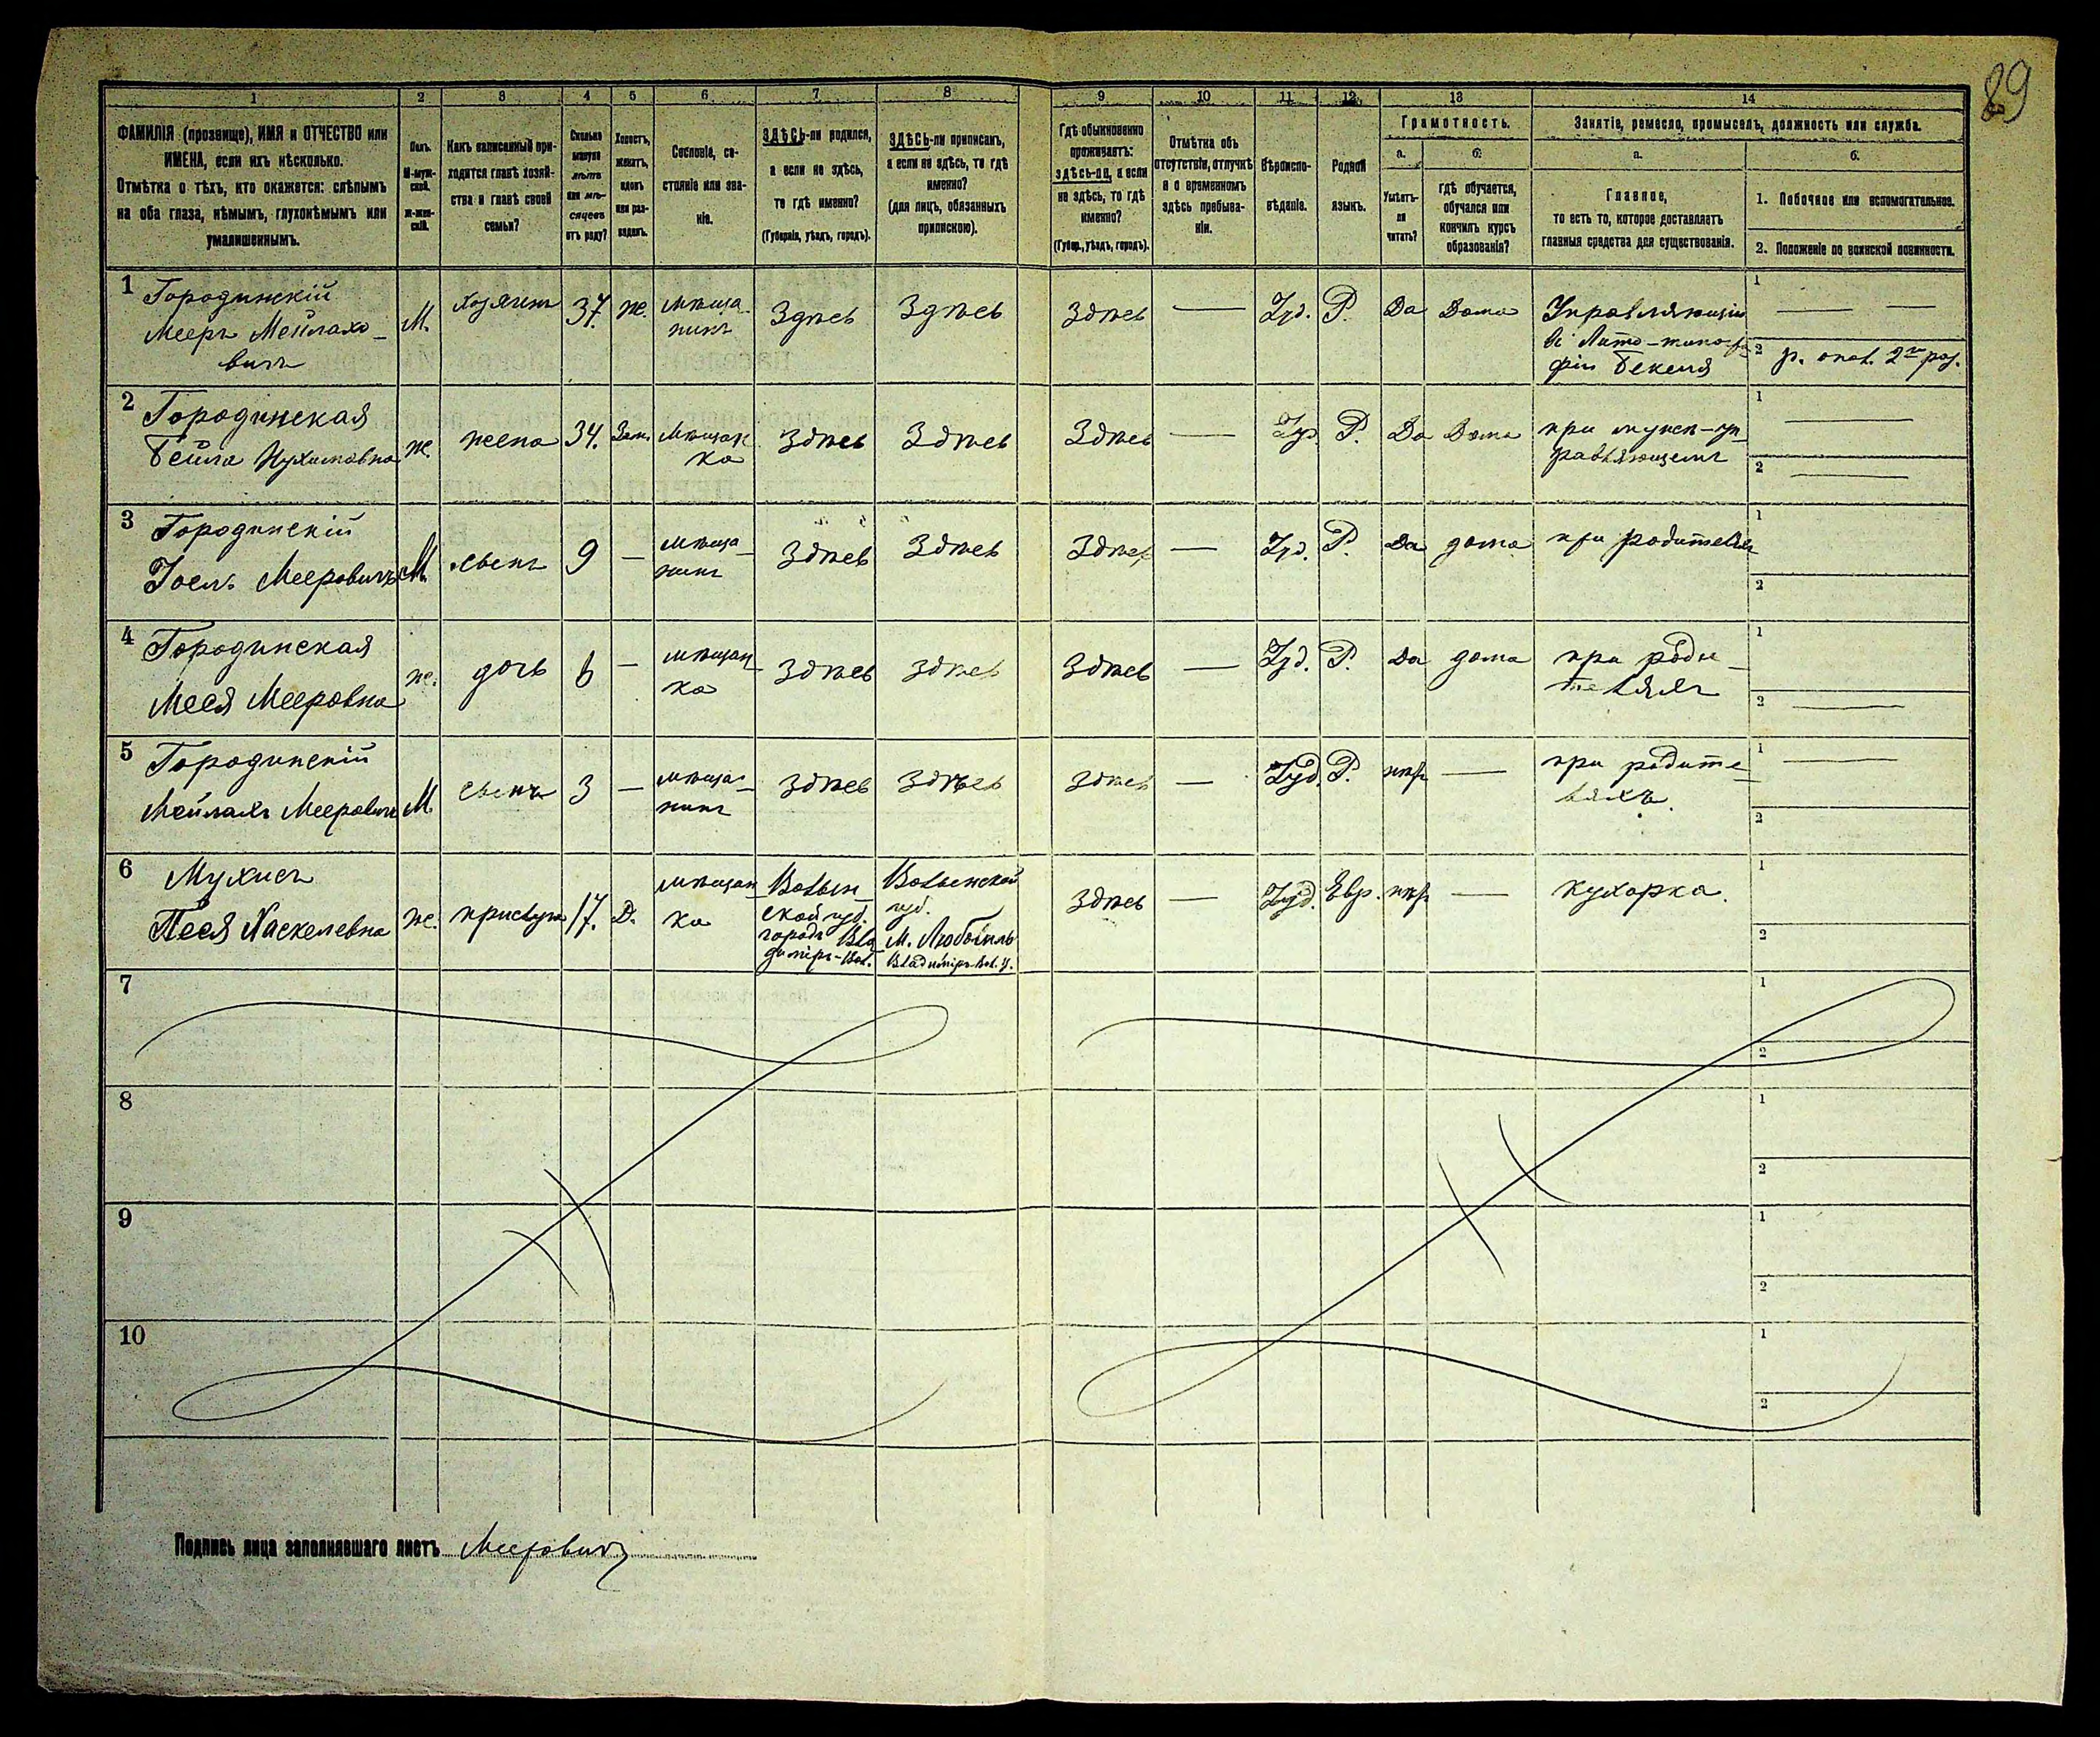 89
1 2 3 4 5 6 7 8 9 10 11 12 13 14
ФАМИЛІЯ (прозвище), ИМЯ и ОТЧЕСТВО или
ИМЕНА, если ихъ нѣсколько.
Отмѣтка о тѣхъ, кто окажется: слѣпымъ
на оба глаза, нѣмымъ, глухонѣмымъ или
умалишеннымъ.
Полъ.
М-муж-
ской.
ж-жен-
скій.
Какъ записанный при-
ходится главѣ хозяй-
ства и главѣ своей
семьи?
Сколько
минуло
лѣтъ
или мѣ-
сяцевъ
отъ роду?
Холостъ,
женатъ,
вдовъ
или раз-
веденъ.
Сословіе, со-
стояніе или зва-
ніе.
ЗДѢСЬ-ли родился,
а если не здѣсь,
то гдѣ именно?
(Губернія, уѣздъ, городъ).
ЗДѢСЬ-ли приписанъ,
а если не здѣсь, то гдѣ
именно?
(для лицъ, обязанныхъ
припискою).
Гдѣ обыкновенно
проживаетъ:
здѣсь-ли, а если
не здѣсь, то гдѣ
именно?
(Губер., уѣздъ, городъ).
Отмѣтка объ
отсутствіи, отлучкѣ
и о временномъ
здѣсь пребыва-
ніи.
Вѣроиспо-
вѣданіе.
Родной
языкъ.
Грамотность.
а.
Умѣетъ-
ли
читать?
б.
гдѣ обучается,
обучался или
кончилъ курсъ
образованія?
Занятіе, ремесло, промыселъ, должность или служба.
а.
Главное,
то есть то, которое доставляетъ
главныя средства для существованія.
б.
1. Побочное или вспомогательное.
2. Положеніе по воинской повинности.
1 Городинскій
Мееръ Мейлахо-
вичъ
М.
Хозяинъ
37.
же.
мѣща-
нинъ
Здѣсь
Здѣсь
Здѣсь
—
Іуд.
Р.
Да
Дома
Управляющій
въ Лито-типогра
фіи Бекеля
1 —
2 р. опол. 2го раз.
2 Городинская
Бейла Нухимовна
же.
жена
34.
Зам.
мѣщан-
ка
Здѣсь
Здѣсь
Здѣсь
—
Іуд
Р.
Да
Дома
при мужѣ-уп-
равляющемъ
1 —
2 —
3 Городинскій
Іоель Мееровичъ
М.
сынъ
9
—
мѣща-
нинъ
Здѣсь
Здѣсь
Здѣсь
—
Іуд.
Р.
Да
дома
при родителях
1
2
4 Городинская
Меся Мееровна
же.
дочь
6
—
мѣщан-
ка
Здѣсь
здѣсь
Здѣсь
—
Іуд.
Р.
Да
дома
при роди-
теляхъ
1
2 —
5 Городинскій
Мейлахъ Мееровичъ
М.
сынъ
3
—
мѣща-
нинъ
Здѣсь
Здѣсь
здѣсь
—
Іуд.
Р.
нѣт
—
при родите-
ляхъ.
1 —
2
6 Мухисъ
Песя Хаскелевна
же.
прислуга
17.
Д.
мѣщан-
ка
Волын-
ской губ.
городъ Вла-
диміръ-Вол.
Волынской
губ.
М. Любомль
Владиміръ-Вол. у.
Здѣсь
—
Іуд.
Евр.
нѣт
—
кухарка.
1
2
7
1
2
8
1
2
9
1
2
10
1
2
Подпись лица заполнявшаго листъ Мееровичъ